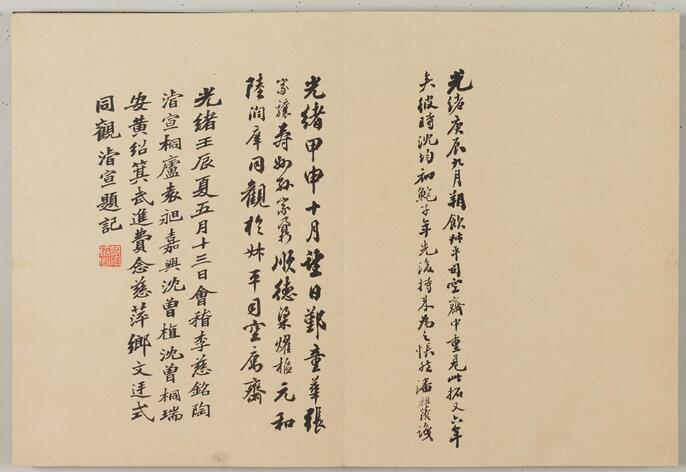 光緒庚辰九月朔飲叔平司空齋中重見此拓又六年
矣彼時沈均初鮑子年先後持來為之悵然潘祖蔭識
光緒甲申十月望日鄞童華張
家驤壽州孫家鼐順德梁燿樞元和
陸潤庠同觀於叔平司空寓齋
光緒壬辰夏五月十三日會稽李慈銘陶
濬宣桐廬袁昶嘉興沈曾植沈曾桐瑞
安黃紹箕武進費念慈萍鄉文廷式
同觀濬宣題記